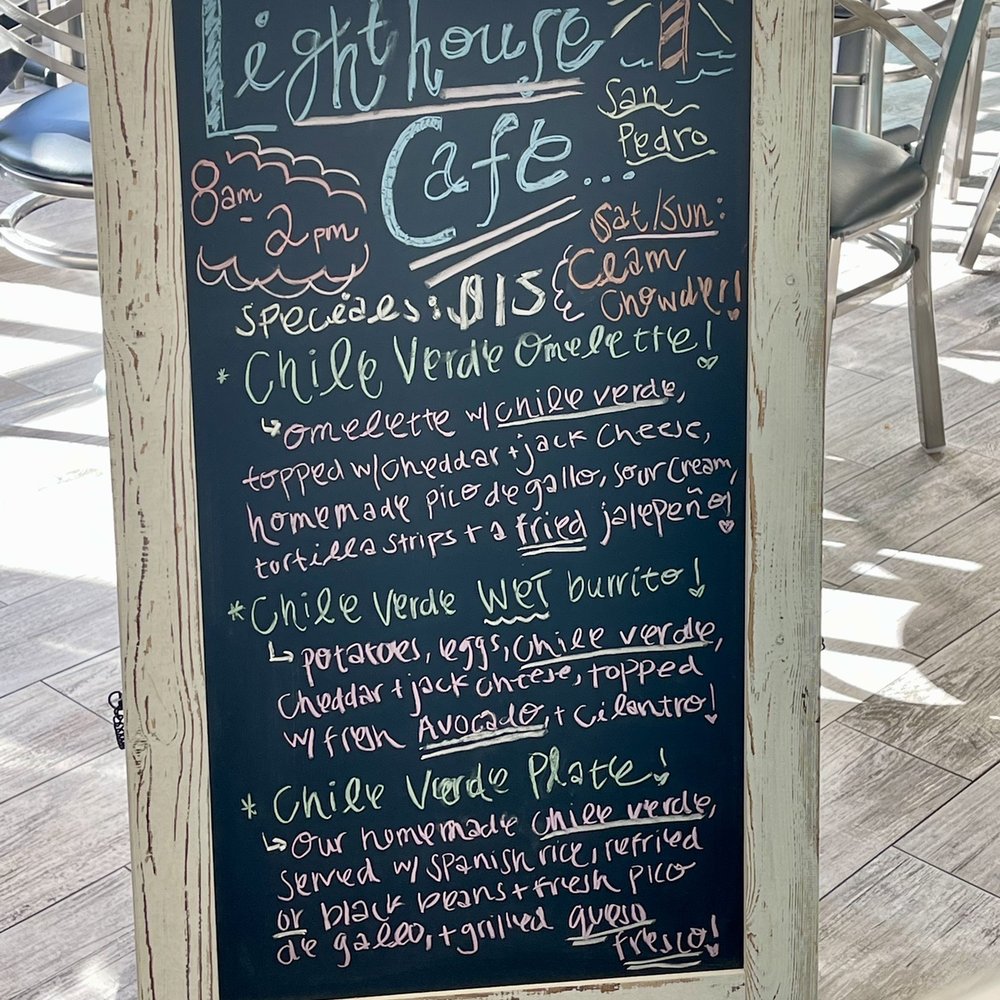 Lighthouse
Cafe...
San
Pedro
8am
- 2pm
Sat/Sun:
Clam
Chowder!
Specials: $15
* Chile Verde Omelette!
omelette w/ chile verde,
topped w/ cheddar + jack cheese,
homemade pico de gallo, sour cream,
tortilla strips + a fried jalepeño!
* Chile Verde WET burrito!
potatoes, eggs, chile verde,
cheddar + jack cheese, topped
w/ fresh Avocado, + cilantro!
* Chile Verde Plate!
Our homemade chile verde,
served w/ spanish rice, refried
or black beans + fresh pico
de gallo, + grilled queso
fresco!